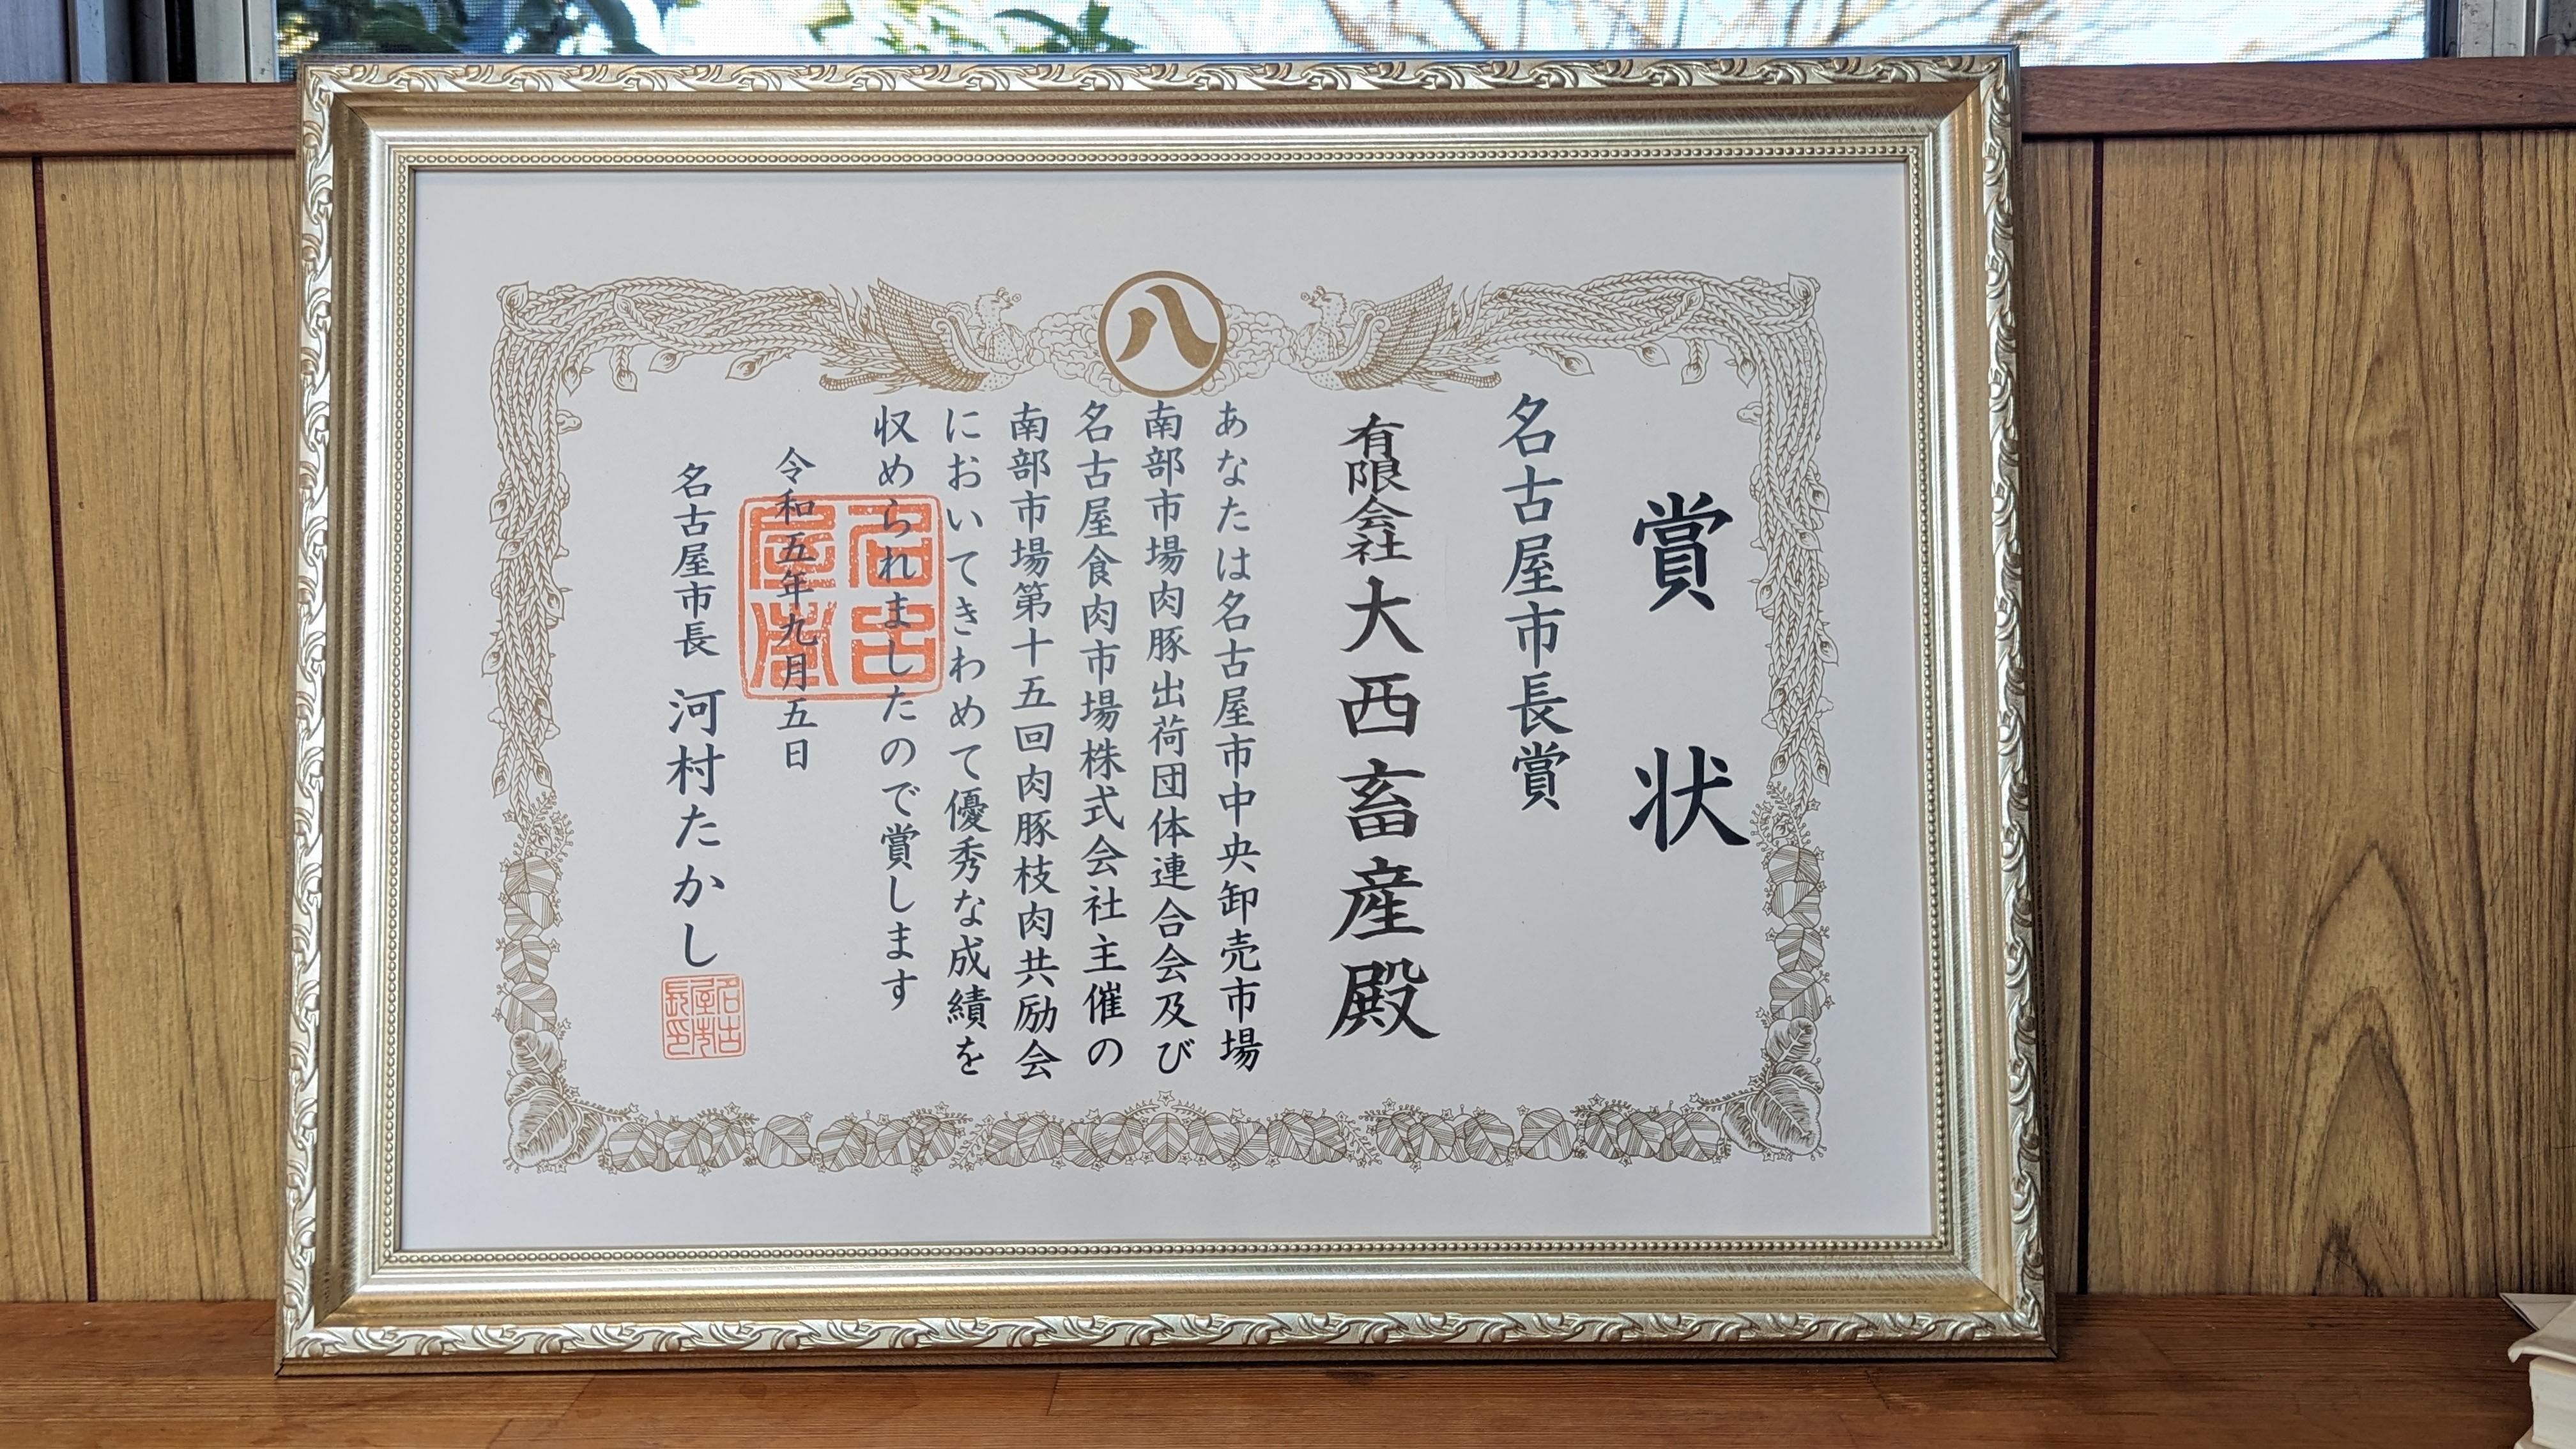 八
賞状
名古屋市長賞
有限会社大西畜産殿
あなたは名古屋市中央卸売市場
南部市場肉豚出荷団体連合会及び
名古屋食肉市場株式会社主催の
南部市場第十五回肉豚枝肉共励会
においてきわめて優秀な成績を
収められましたので賞します
令和五年九月五日
名古屋市長 河村たかし
名古屋市
名古屋市長印